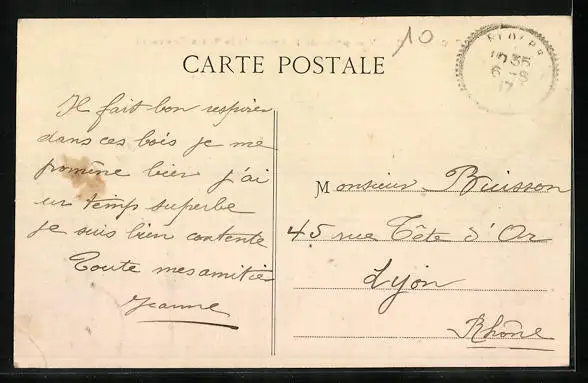 10
CARTE POSTALE
Il fait bon respirer
dans ces bois je me
promène bien j'ai
un temps superbe
je suis bien contente
Toute mes amitiés
Jeanne
Monsieur Buisson
45 rue Tête d'Or
Lyon
Rhône